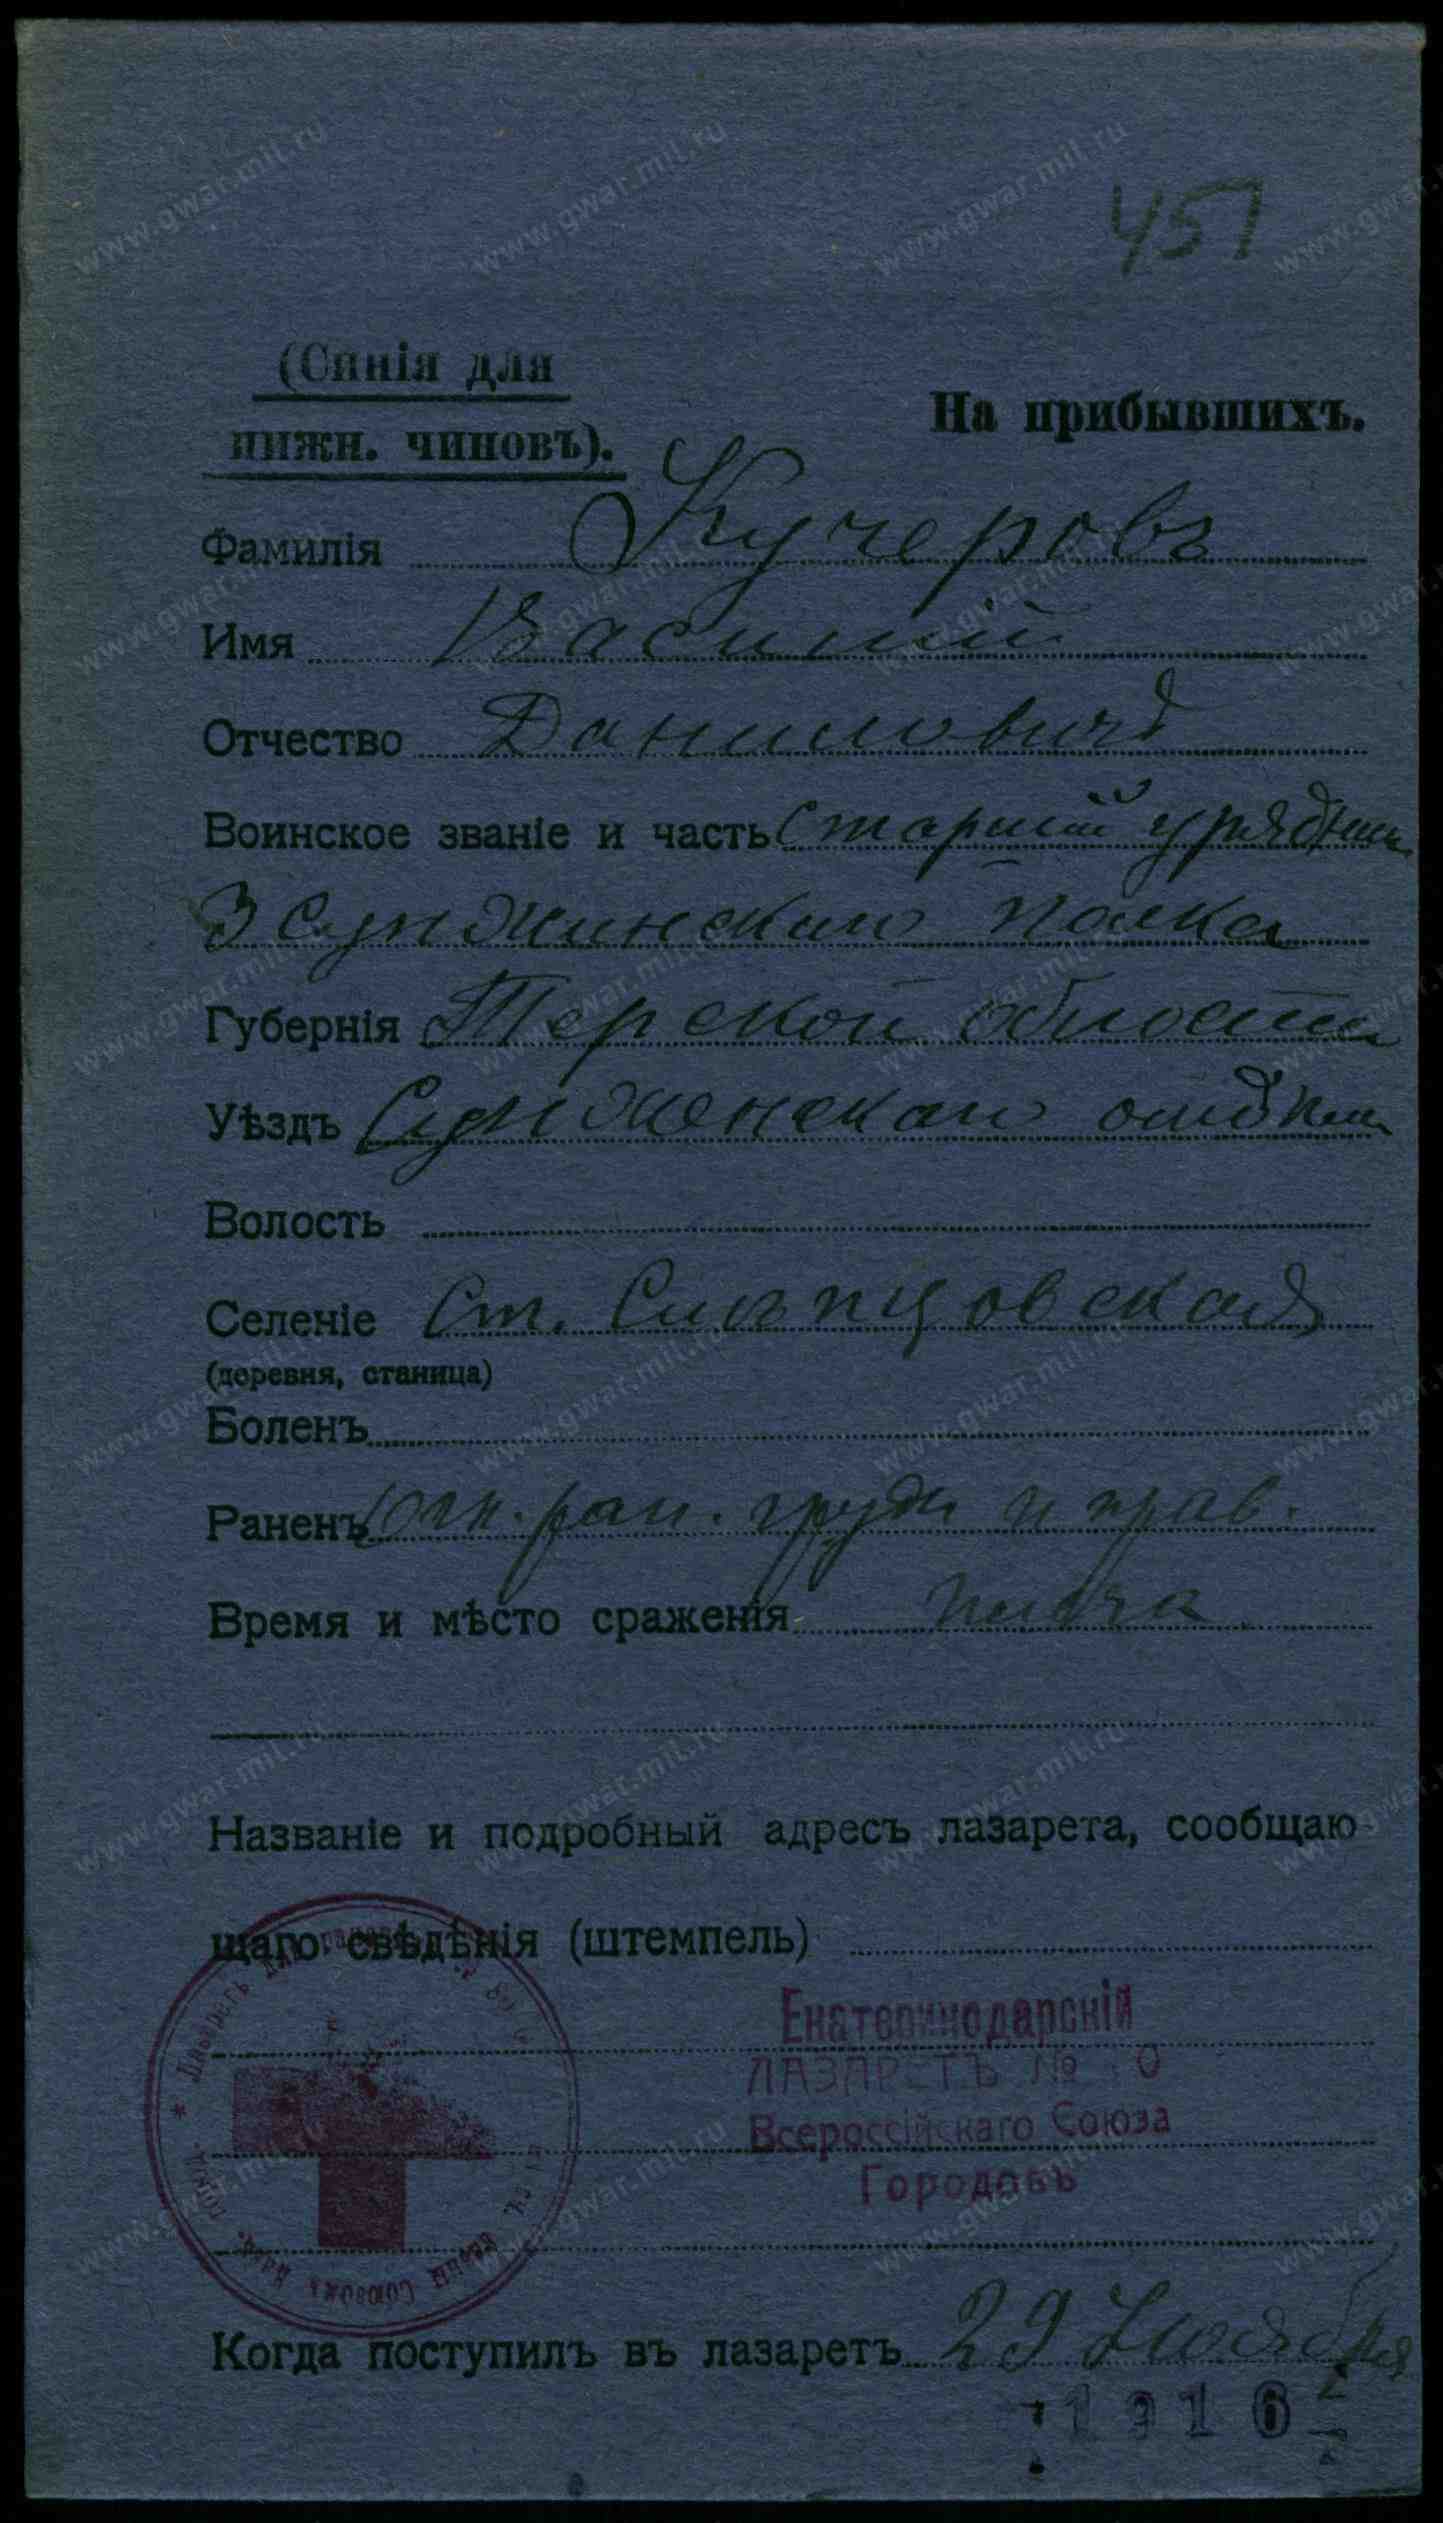 451
(Синія для
нижн. чиновъ).
На прибывшихъ.
Фамилія Кучеровъ
Имя Василій
Отчество Даниловичъ
Воинское званіе и часть Старшій урядник
3 Сунжинскаго полка
Губернія Терской области
Уѣздъ Сунженскаго отдѣла
Волость
Селеніе Ст. Слепцовская
(деревня, станица)
Боленъ
Раненъ огн. ран. груди и прав.
Время и мѣсто сраженія плеча
Названіе и подробный адресъ лазарета, сообщаю
щаго свѣдѣнія (штемпель)
Екатеринодарскій
ЛАЗАРЕТЪ №
Всероссійскаго Союза
Городовъ
Когда поступилъ въ лазаретъ 29 Ноября
1916
www.gwar.mil.ru